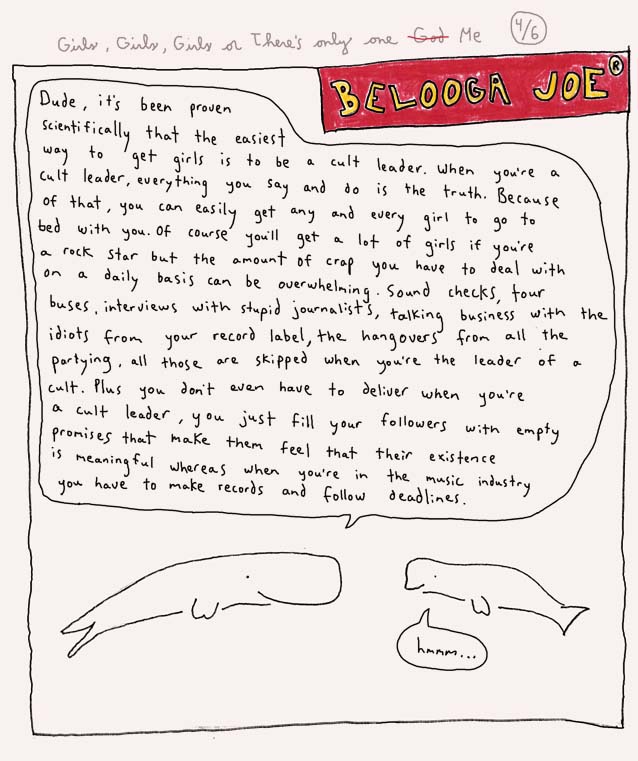 Girls, Girls, Girls or There's only one God Me
4/6
BELOOGA JOE®
Dude, it's been proven
scientifically that the easiest
way to get girls is to be a cult leader. When you're a
cult leader, everything you say and do is the truth. Because
of that, you can easily get any and every girl to go to
bed with you. Of course you'll get a lot of girls if you're
a rock star but the amount of crap you have to deal with
on a daily basis can be overwhelming. Sound checks, tour
buses, interviews with stupid journalists, talking business with the
idiots from your record label, the hangovers from all the
partying, all those are skipped when you're the leader of a
cult. Plus you don't even have to deliver when you're
a cult leader, you just fill your followers with empty
promises that make them feel that their existence
is meaningful whereas when you're in the music industry
you have to make records and follow deadlines.
hmmm...